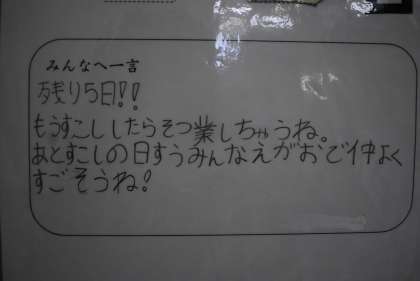 みんなへ一言
残り5日!!
もうすこししたらそつ業しちゃうね。
あとすこしの日すうみんなえがおで仲よく
すごそうね!